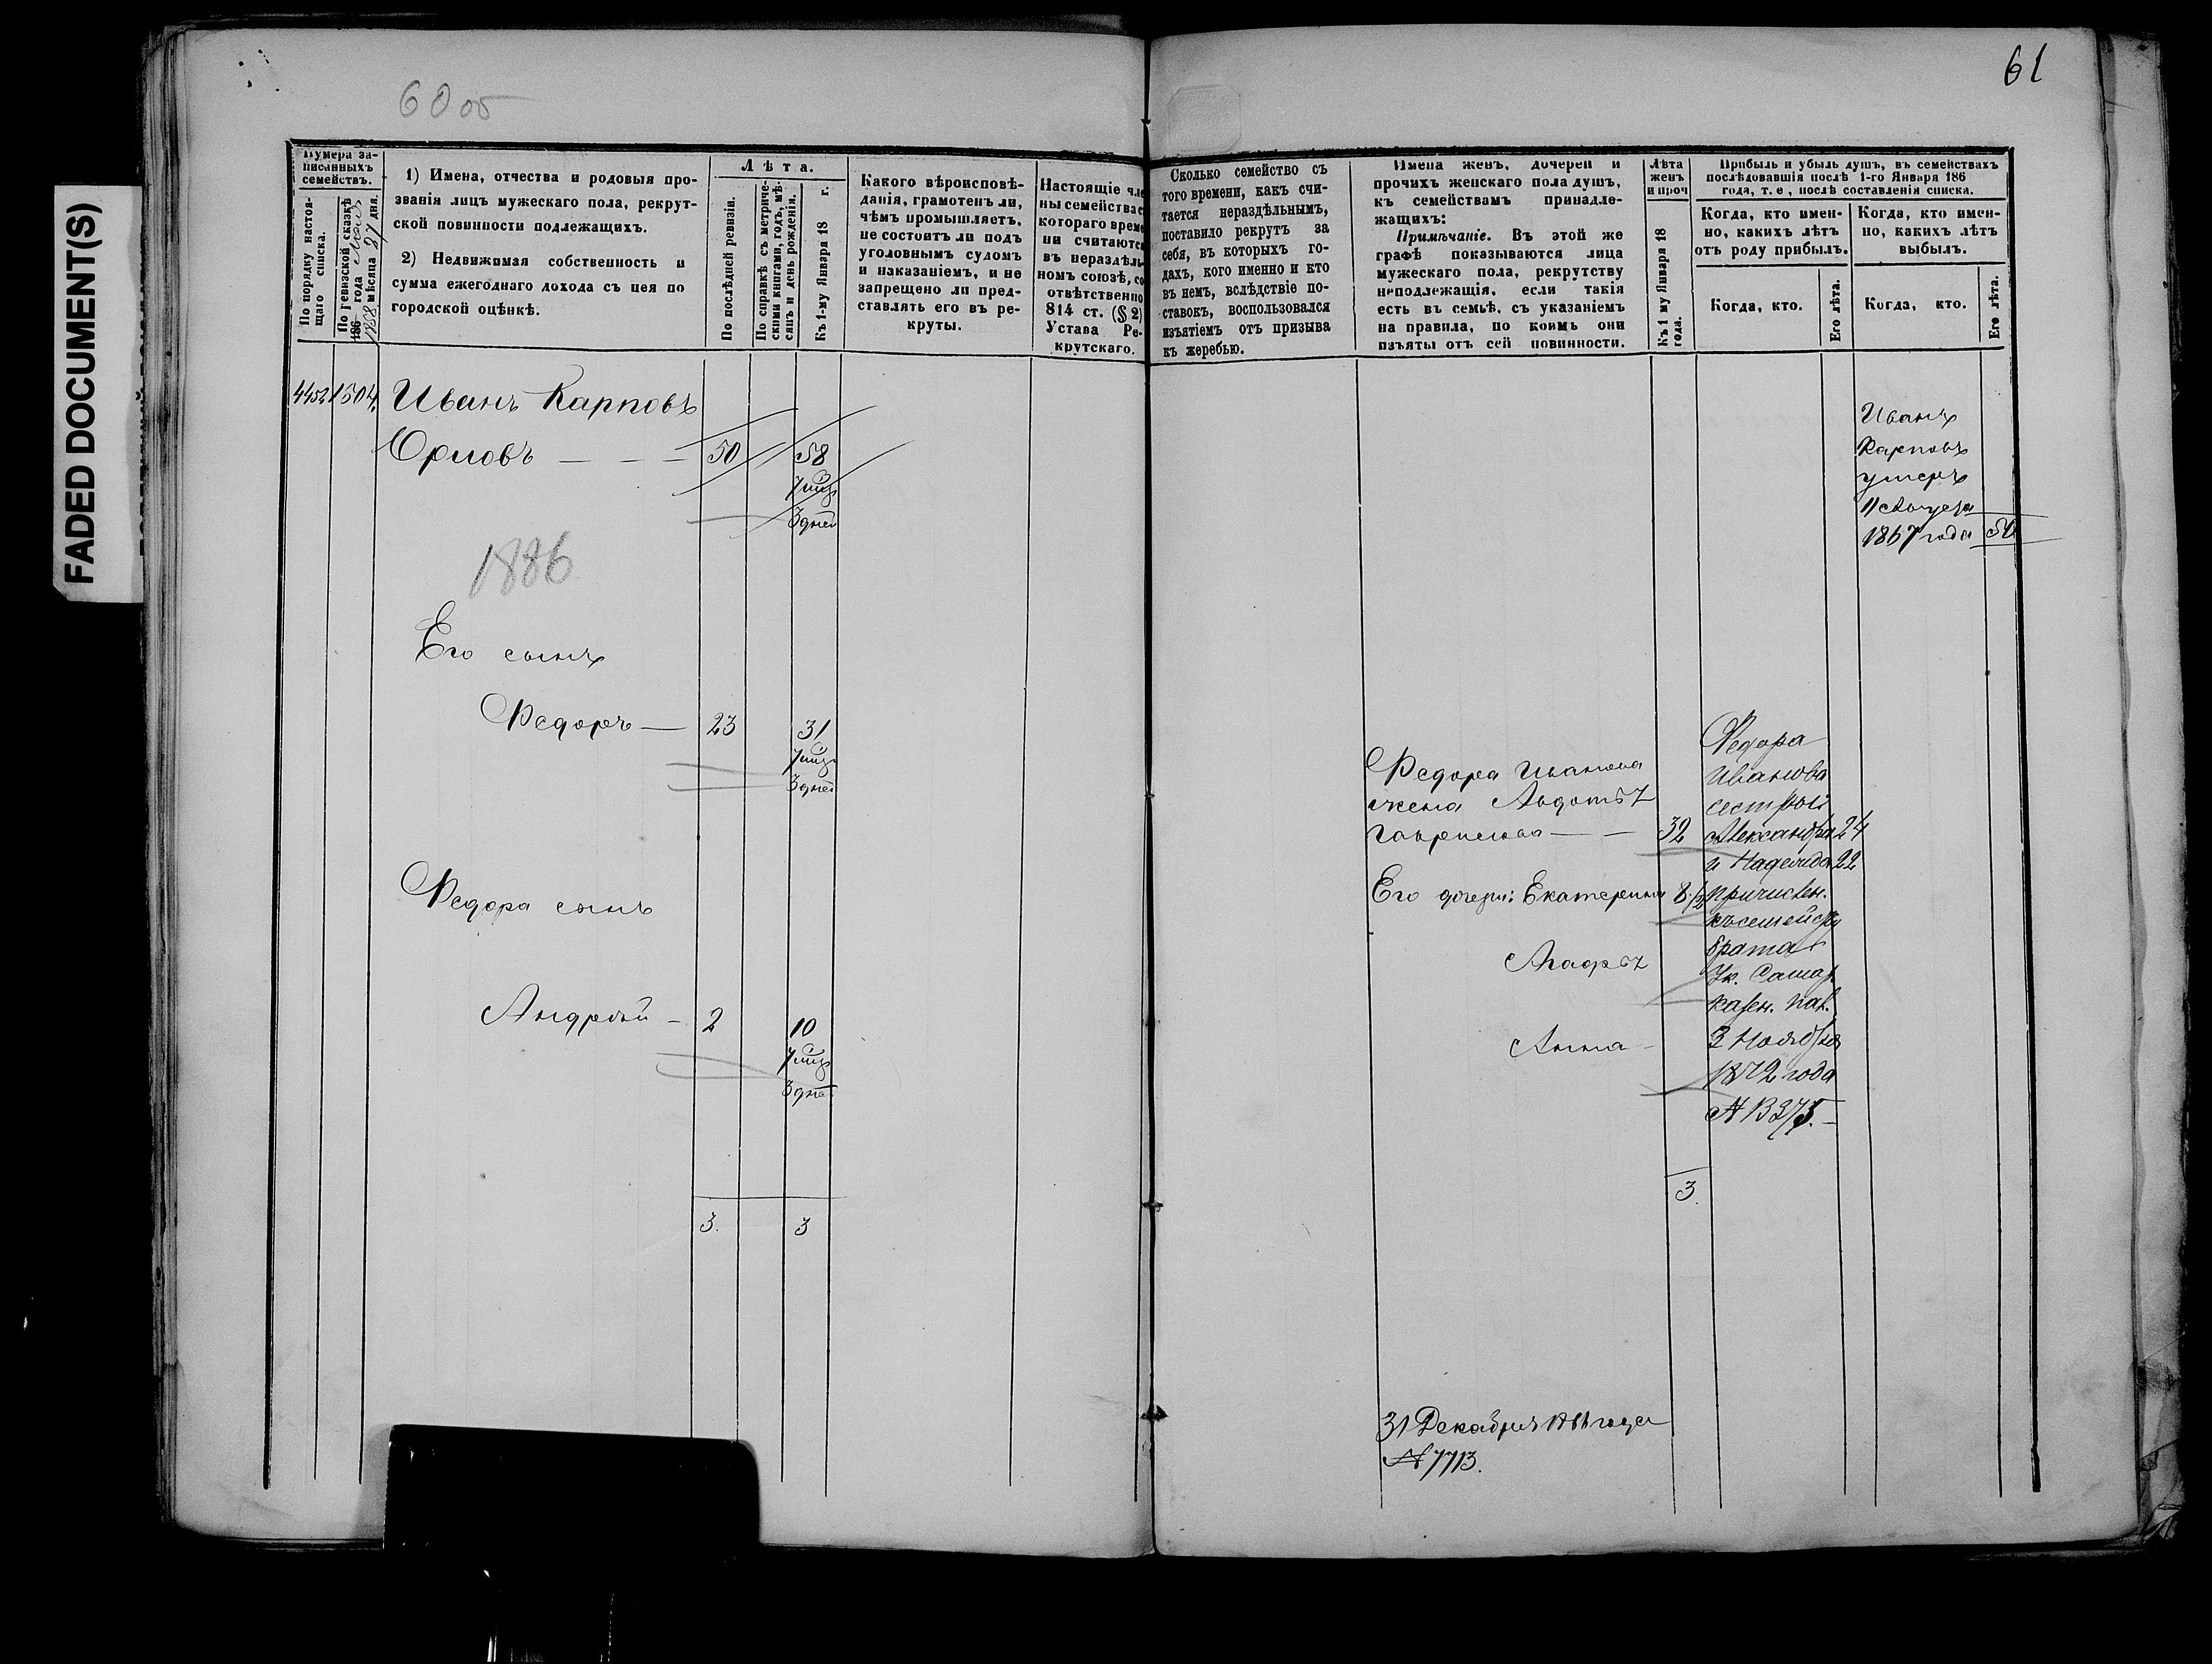 FADED DOCUMENT(S)
61
Нумера за-
писанныхъ
семействъ.
По порядку настоя-
щаго списка.
По ревизской сказкѣ
186 года
1858 мѣсяца 27 дня.
1) Имена, отчества и родовыя про-
званія лицъ мужескаго пола, рекрут-
ской повинности подлежащихъ.
2) Недвижимая собственность и
сумма ежегоднаго дохода съ нея по
городской оцѣнкѣ.
Лѣта.
По послѣдней ревизіи.
По справкѣ съ метриче-
скими книгами, годъ, мѣ-
сяцъ и день рожденія.
Къ 1-му Января 18 г.
Какого вѣроисповѣ-
данія, грамотенъ ли,
чѣмъ промышляетъ,
не состоитъ ли подъ
уголовнымъ судомъ
и наказаніемъ, и не
запрещено ли пред-
ставлять его въ ре-
круты.
Настоящіе чле
ны семейства с
котораго време
ни считаются
въ нераздѣль-
номъ союзѣ, со
отвѣтственно
814 ст. (§ 2)
Устава Ре-
крутскаго.
Сколько семейство съ
того времени, какъ счи-
тается нераздѣльнымъ,
поставило рекрутъ за
себя, въ которыхъ го-
дахъ, кого именно и кто
въ немъ, вслѣдствіе по-
ставокъ, воспользовался
изъятіемъ отъ призыва
къ жеребью.
Имена женъ, дочерей и
прочихъ женскаго пола душъ,
къ семействамъ принадле-
жащихъ:
Примѣчаніе. Въ этой же
графѣ показываются лица
мужескаго пола, рекрутству
неподлежащія, если такія
есть въ семьѣ, съ указаніемъ
на правила, по коимъ они
изъяты отъ сей повинности.
Лѣта
женъ
и проч
Къ 1 му Января 18
года.
Прибыль и убыль душъ, въ семействахъ
послѣдовавшія послѣ 1-го Января 186
года, т. е, послѣ составленія списка.
Когда, кто имен-
но, какихъ лѣтъ
отъ роду прибылъ.
Когда, кто имен-
но, какихъ лѣтъ
выбылъ.
Когда, кто.
Его лѣта.
Когда, кто.
Его лѣта.
1504.
Иванъ Карповъ
Орловъ — — — 50 58
7 мѣц
3 дней
1886
Его сынъ
Федоръ — 23 31
7 мѣц
3 дней
Федора сынъ
Андрей — 2 10
7 мѣц
3 дней
3. 3
Федора Иванова
жена Авдотья
Гаврилова — — 32
Его дочери: Екатерина 8 1/2
Агафья
Анна —
3.
31 Декабря 1866 года
№ 7713.
Федора
Иванова
сестры
Александра 24
и Надежда 22
причислен.
къ семейству
брата
Ук. Самар.
казен. пал.
3 Ноября
1872 года
№ 13375.—
Иванъ
Карповъ
умеръ
11 Августа
1867 года